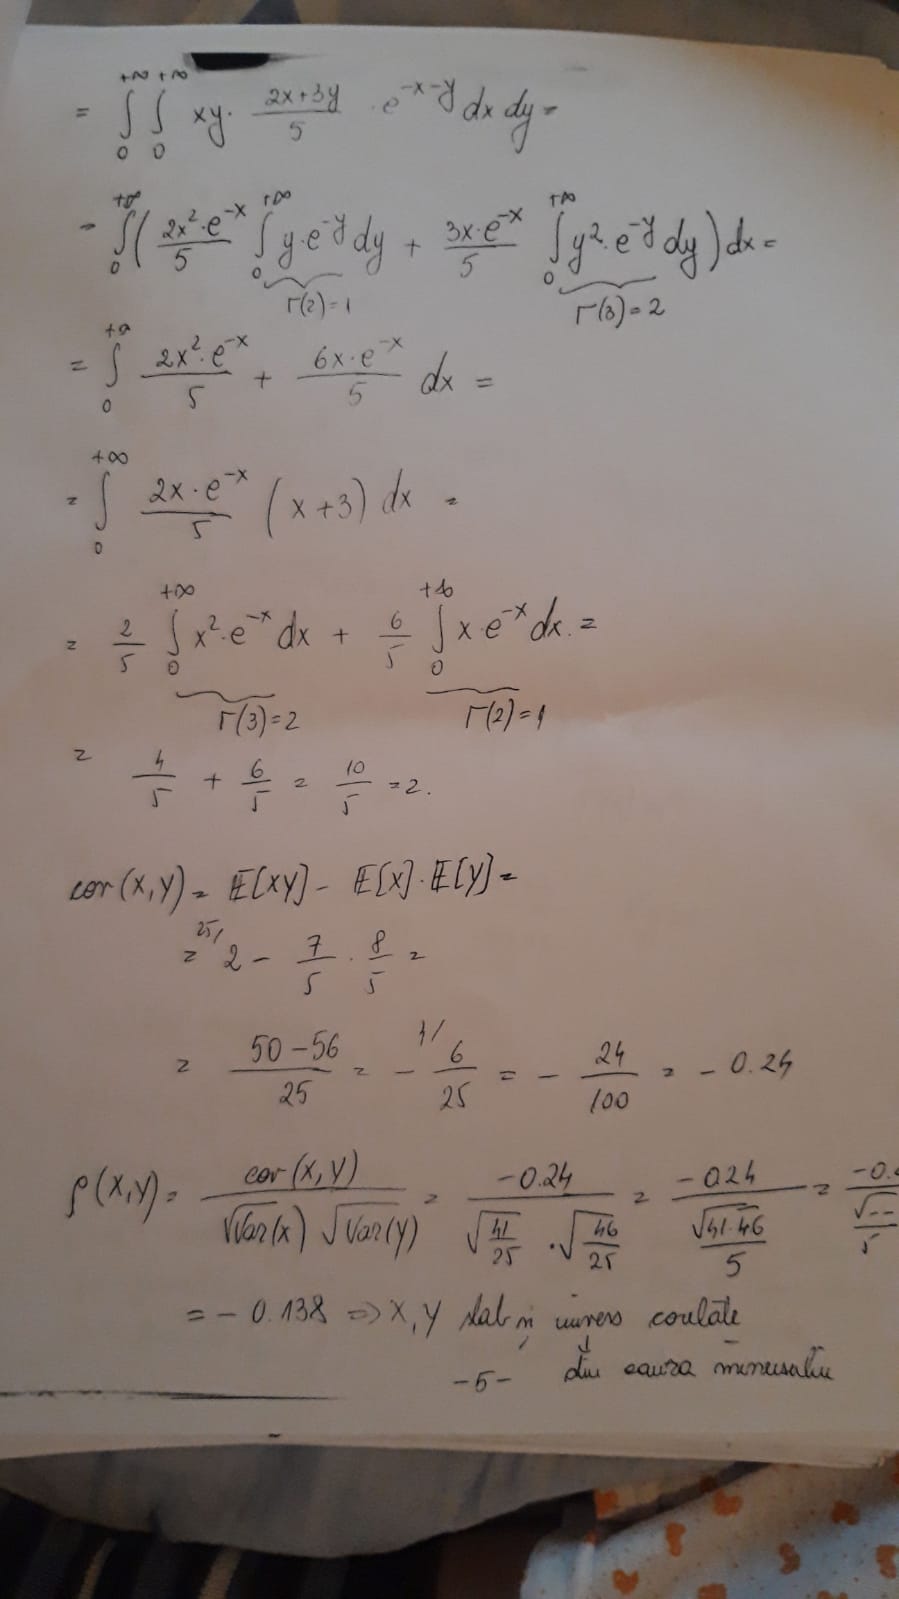 = ∫₀^{+∞} ∫₀^{+∞} xy · (2x+3y)/5 · e^{-x-y} dx dy =
= ∫₀^{+∞} ( 2x²·e^{-x}/5 ∫₀^{+∞} y·e^{-y} dy + 3x·e^{-x}/5 ∫₀^{+∞} y²·e^{-y} dy ) dx =
Γ(2)=1 Γ(3)=2
= ∫₀^{+∞} 2x²·e^{-x}/5 + 6x·e^{-x}/5 dx =
= ∫₀^{+∞} 2x·e^{-x}/5 (x+3) dx =
= 2/5 ∫₀^{+∞} x²·e^{-x} dx + 6/5 ∫₀^{+∞} x·e^{-x} dx. =
Γ(3)=2 Γ(2)=1
= 4/5 + 6/5 = 10/5 = 2.
cov(X,Y) = E[XY] - E[X]·E[Y] =
= ^{25/}2 - 7/5 · 8/5 =
= (50-56)/25 = - ^{4/}6/25 = - 24/100 = - 0.24
ρ(X,Y) = cov(X,Y)/(√Var(X) √Var(Y)) = -0.24/(√(41/25) · √(46/25)) = -0.24/(√(41·46)/5) =
= - 0.138 => X,Y slab și invers corelate
-5- ↓ din cauza minusului